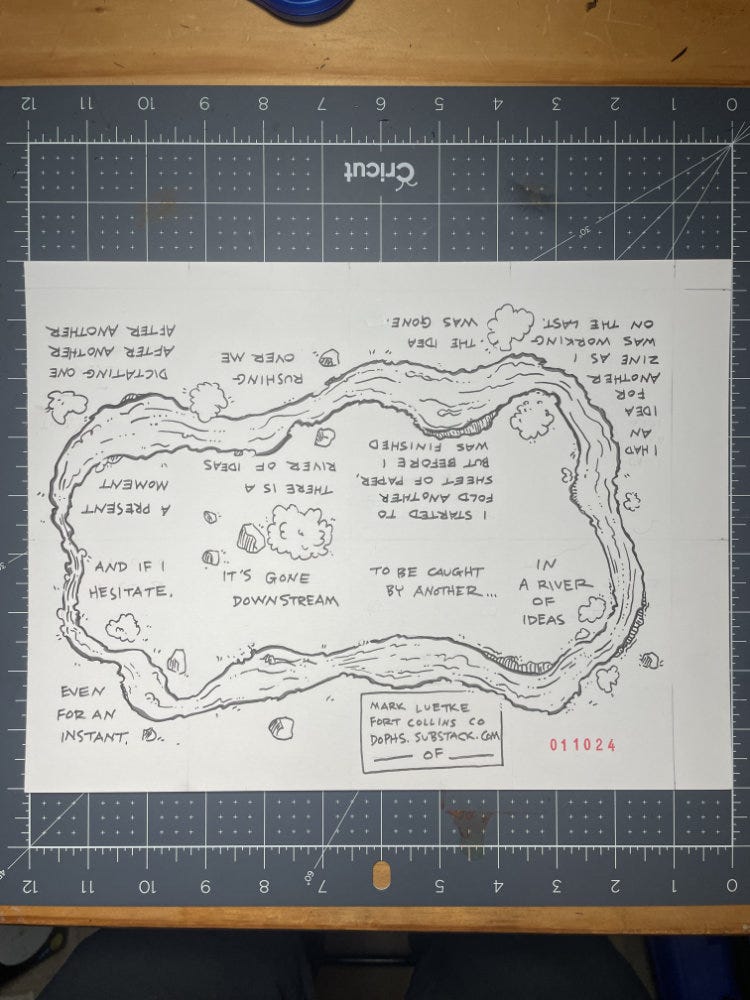 Cricut
0 1 2 3 4 5 6 7 8 9 10 11 12
30°
I HAD
AN
IDEA
FOR
ANOTHER
ZINE AS I
WAS WORKING
ON THE LAST.
I STARTED TO
FOLD ANOTHER
SHEET OF PAPER,
BUT BEFORE I
WAS FINISHED
THE IDEA
WAS GONE.
THERE IS A
RIVER OF IDEAS
RUSHING
OVER ME
A PRESENT
MOMENT
DICTATING ONE
AFTER ANOTHER
AFTER ANOTHER
AND IF I
HESITATE.
EVEN
FOR AN
INSTANT.
IT'S GONE
DOWNSTREAM
TO BE CAUGHT
BY ANOTHER...
IN
A RIVER
OF
IDEAS
MARK LUETKE
FORT COLLINS CO
DOPHS.SUBSTACK.COM
OF
011024
60°
0 1 2 3 4 5 6 7 8 9 10 11 12